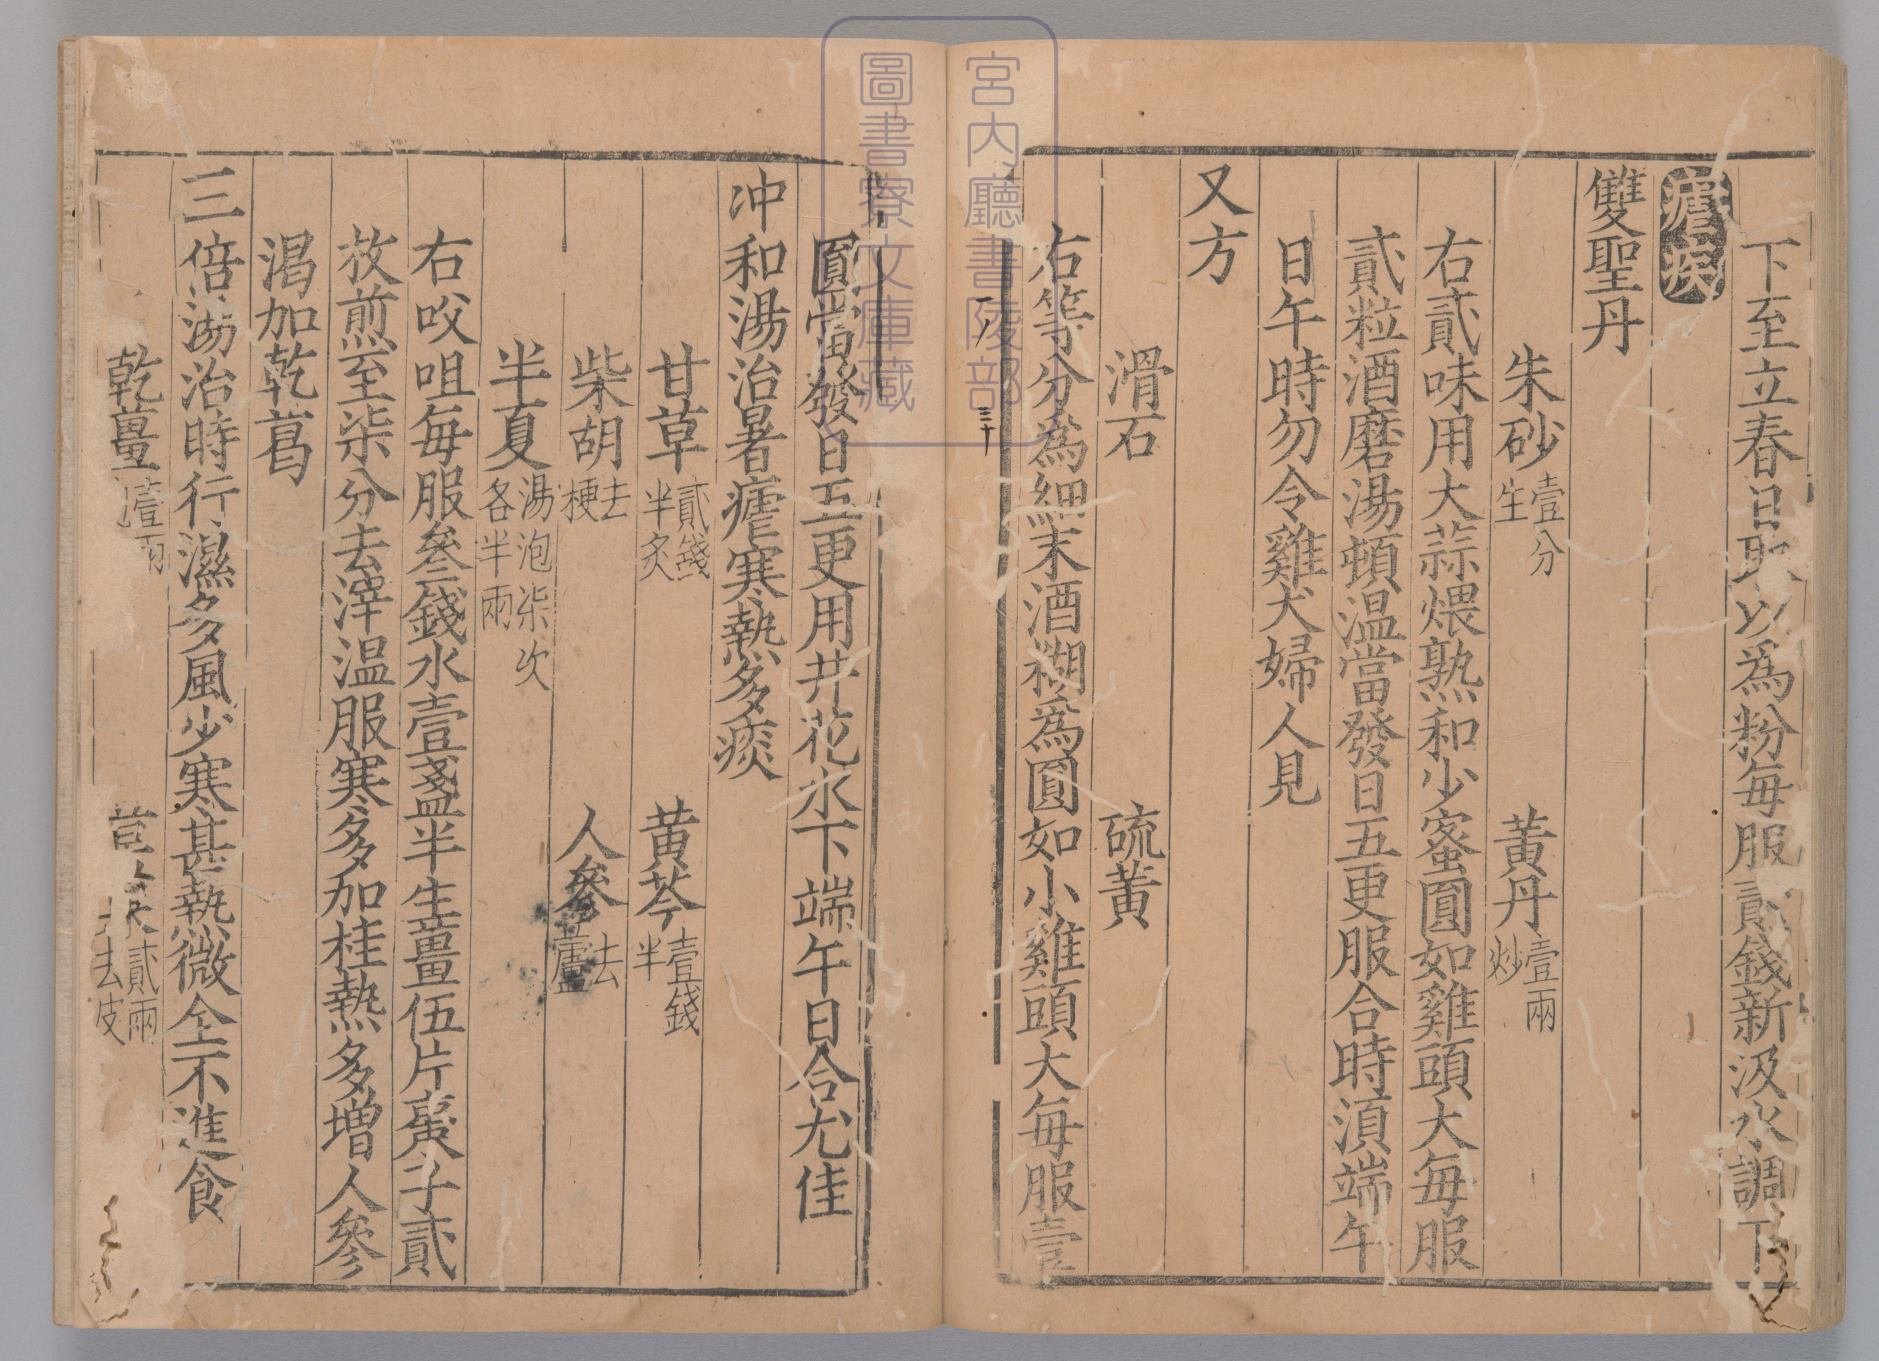 下至立春日取以為粉每服貳錢新汲水調下
瘧疾
雙聖丹
朱砂壹分生 黃丹壹兩炒
右貳味用大蒜煨熟和少蜜圓如雞頭大每服
貳粒酒磨湯頓温當發日五更服合時湏端午
日午時勿令雞犬婦人見
又方
滑石 硫黃
右等分為細末酒糊為圓如小雞頭大每服壹
三十
圓當發日五更用井花水下端午日合尤佳
冲和湯治暑瘧寒熱多痰
甘草貳錢半炙 黄芩壹錢半
柴胡去梗 人參去蘆
半夏湯泡柒次各半兩
右㕮咀每服叄錢水壹盞半生薑伍片棗子貳
枚煎至柒分去滓温服寒多加桂熱多增人參
渴加乾葛
三倍湯治時行濕多風少寒甚熱微全不進食
乾薑壹兩 草菓貳兩去皮
宮内廳書陵部
圖書寮文庫藏